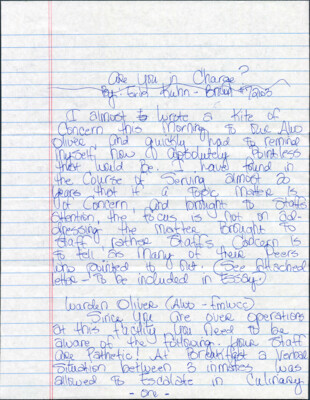 Are You in Charge?
By: Erid Kuhn - Brown #72103
I almost to wrote a Kite of
Concern this morning to our AWO
Oliver, and quickly had to remind
myself how absolutely pointless
that would be. I have found in
the Course of Serving almost 20
years that if a Topic Matter is
of Concern, and brought to staff's
attention, the focus is not on ad-
dressing the Matter brought to
Staff, rather Staff's Concern is
to tell as many of their Peers
who pointed it out. (See Attached
letter - To be included in Essay.)
Warden Oliver (AWO - FMWCC)
Since You are over operations
at this facility You Need to be
aware of the following. Your Staff
are Pathetic! At Breakfast a Verbal
Situation between 3 inmates was
allowed to Escalate in Culinary
- one -